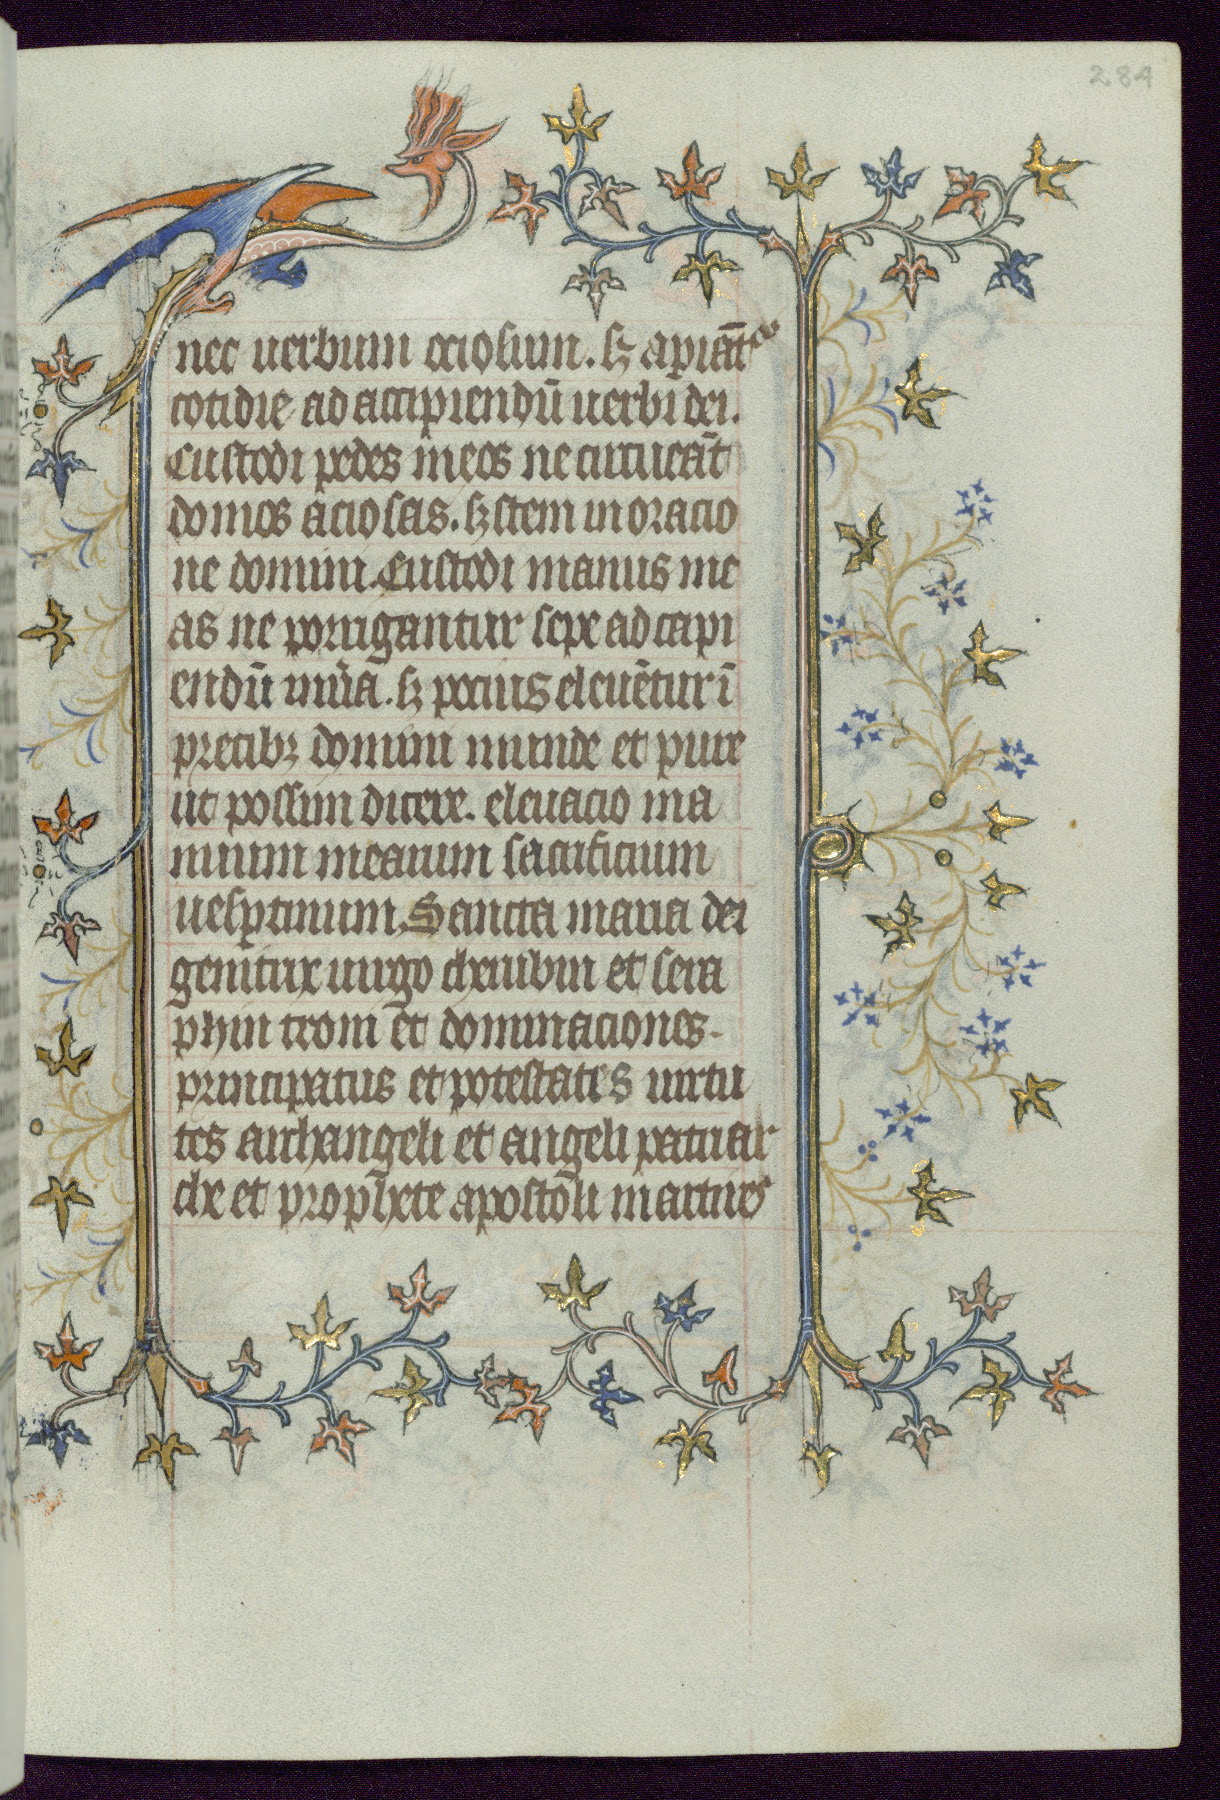 284
nec uerbum occiosum. sꝫ apiāt̄ᷓ
cotidie ad accipiendū uerbi dei.
Custodi pedes meos ne circueāt
domos aciosas. sꝫ stem in oracio
ne domini. Custodi manus me
as ne porrigantur sepe ad capi
endū mūa. sꝫ pocius eleuētur ī
precibꝫ domini munde et pure
ut possim dicere. eleuacio ma
nuum mearum sacrificium
uesptinum. Sancta maria dei
genitrix uirgo cherubin et sera
phin troni et dominaciones.
principatus et potestates uirtu
tes archangeli et angeli patriar
che et prophete apostoli martires